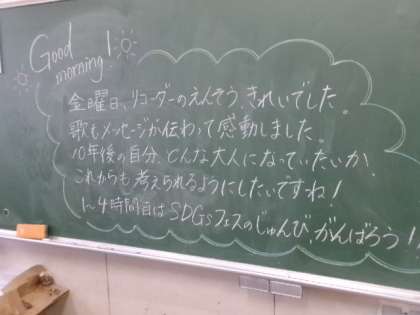 Good
morning!
金曜日、リコーダーのえんそう、きれいでした。
歌もメッセージが伝わって感動しました。
10年後の自分、どんな大人になっていたいか、
これからも考えられるようにしたいですね！
1〜4時間目はSDGsフェスのじゅんび、がんばろう!!